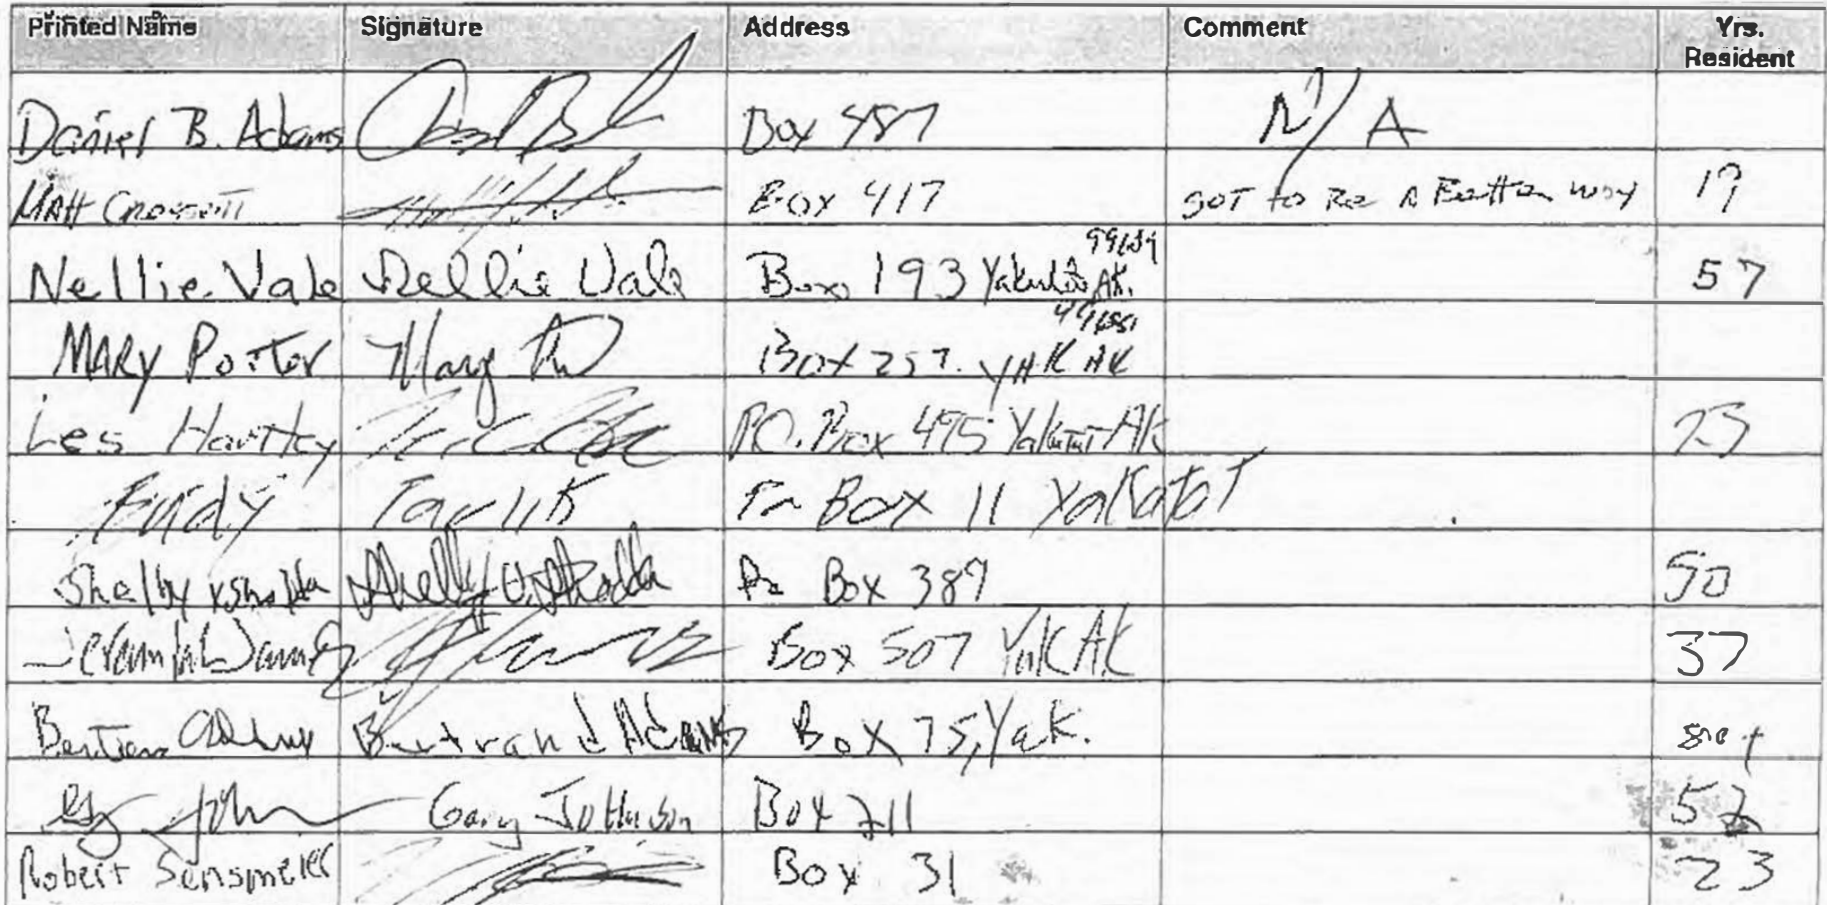 Printed Name Signature Address Comment Yrs. Resident
Daniel B. Adams Box 487 N/A
Matt Box 417 GOT to Be A Better way 19
Nellie Vale Nellie Vale Box 193 Yakutat, AK. 57
MARY PorTer Mary Box 257. YAK AK
Les Hartley P.O. Box 495 Yakutat AK 23
Box 11 YaKaTaT
Shelby Po Box 387 50
Box 507 Yak AK 37
Bertrand Adams Box 75, Yak.
Gary Johnson Box 211 52
Robert Sensmeier Box 31 23